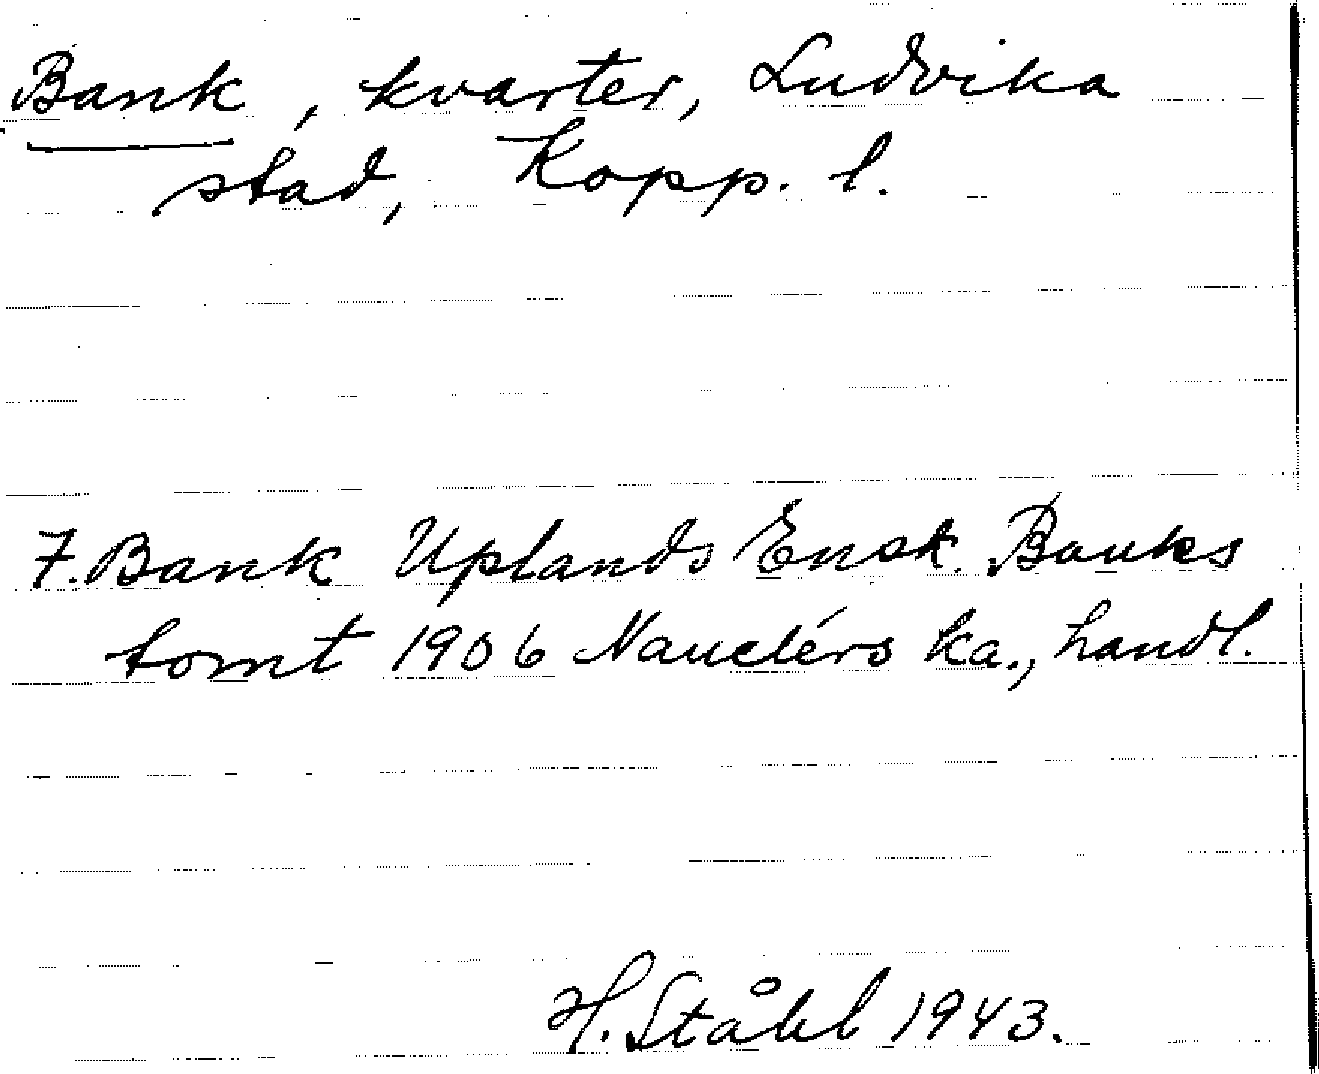 Bank, kvarter, Ludvika
stad, Kopp. l.
7. Bank Uplands Ensk. Banks
tomt 1906 Nauclérs ka., handl.
H. Ståhl 1943.